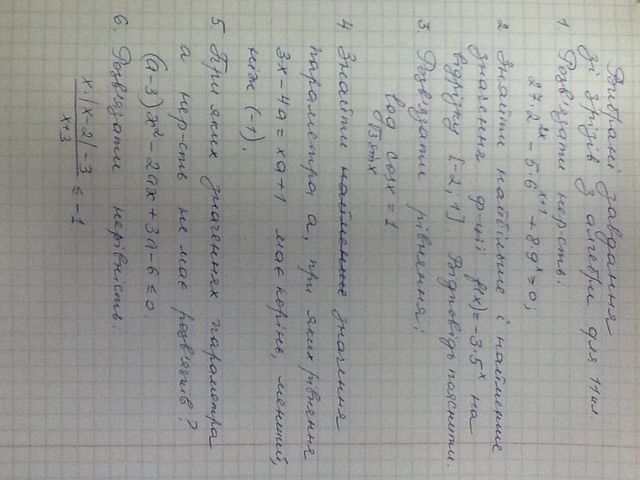 Вибрані завдання
зі зрізів з алгебри для 11 кл.
1 Розв'язати нер-сть.
27·2²ˣ - 5·6ˣ⁺¹ + 8·9ˣ = 0;
2 Знайти найбільше і найменше
значення ф-ції f(x) = -3·5ˣ на
відрізку [-2; 1]. Відповідь пояснити.
3 Розв'язати рівняння:
log cosx = 1
√3 sinx
4 Знайти значення
параметра a, при яких рівняння
3x - 4a = xa + 1 має корінь, менший,
ніж (-1).
5. При яких значеннях параметра
a нер-ств не має розв'язків?
(a-3)x² - 2ax + 3a - 6 ≤ 0.
6. Розв'язати нерівність:
x·|x-2| - 3
x+3 ≤ -1